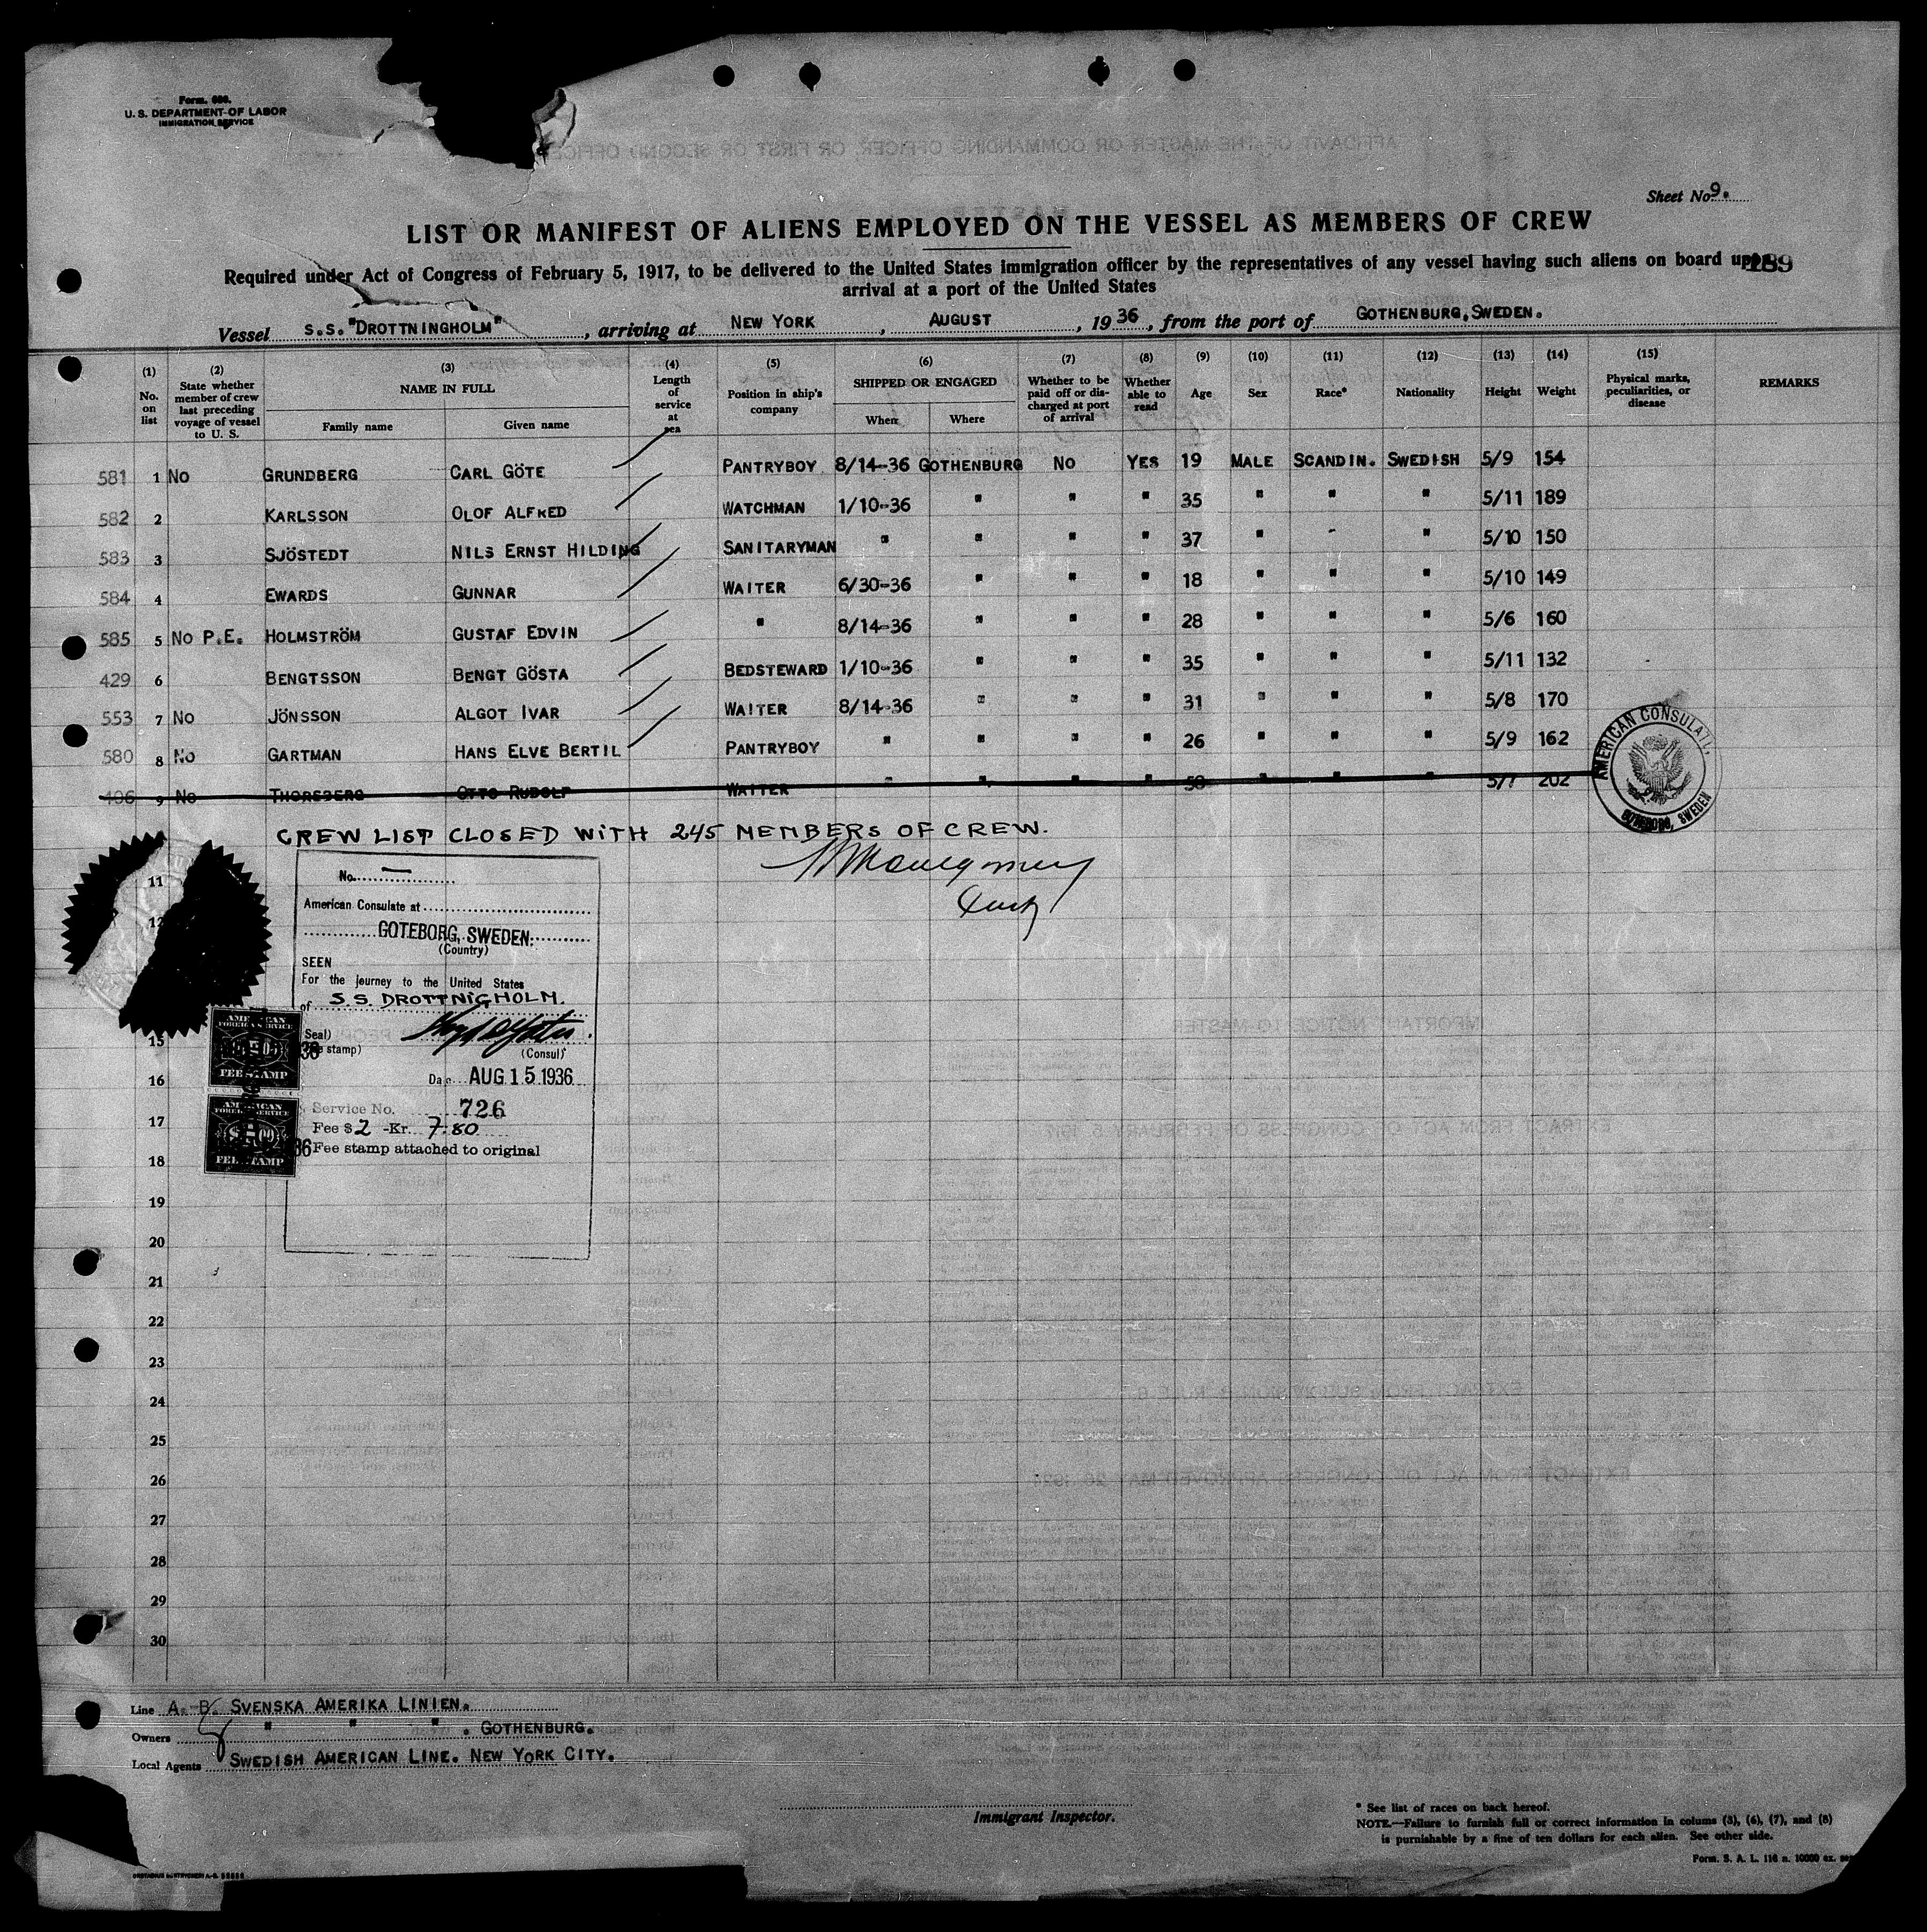 Form. 680.
U. S. DEPARTMENT OF LABOR
IMMIGRATION SERVICE
Sheet No. 9.
LIST OR MANIFEST OF ALIENS EMPLOYED ON THE VESSEL AS MEMBERS OF CREW
Required under Act of Congress of February 5, 1917, to be delivered to the United States immigration officer by the representatives of any vessel having such aliens on board upon
189
arrival at a port of the United States
Vessel S.S. "DROTTNINGHOLM", arriving at NEW YORK, AUGUST, 1936, from the port of GOTHENBURG, SWEDEN.
(1) No. on list
(2) State whether member of crew last preceding voyage of vessel to U. S.
(3) NAME IN FULL
Family name
Given name
(4) Length of service at sea
(5) Position in ship's company
(6) SHIPPED OR ENGAGED
When
Where
(7) Whether to be paid off or discharged at port of arrival
(8) Whether able to read
(9) Age
(10) Sex
(11) Race*
(12) Nationality
(13) Height
(14) Weight
(15) Physical marks, peculiarities, or disease
REMARKS
581 1 No GRUNDBERG CARL GÖTE PANTRYBOY 8/14-36 GOTHENBURG No YES 19 MALE SCANDIN. SWEDISH 5/9 154
582 2 KARLSSON OLOF ALFRED WATCHMAN 1/10-36 " " " 35 " " " 5/11 189
583 3 SJÖSTEDT NILS ERNST HILDING SANITARYMAN " " " " 37 " " " 5/10 150
584 4 EWARDS GUNNAR WAITER 6/30-36 " " " 18 " " " 5/10 149
585 5 No P.E. HOLMSTRÖM GUSTAF EDVIN " 8/14-36 " " " 28 " " " 5/6 160
429 6 BENGTSSON BENGT GÖSTA BEDSTEWARD 1/10-36 " " " 35 " " " 5/11 132
553 7 No JÖNSSON ALGOT IVAR WAITER 8/14-36 " " " 31 " " " 5/8 170
580 8 No GARTMAN HANS ELVE BERTIL PANTRYBOY " " " " 26 " " " 5/9 162
406 9 No THORSBERG OTTO RUDOLF WAITER " " " " 50 " " " 5/7 202
AMERICAN CONSULATE.
GOTEBORG, SWEDEN
CREW LIST CLOSED WITH 245 MEMBERS OF CREW.
No.
American Consulate at
GOTEBORG, SWEDEN.
(Country)
SEEN
For the journey to the United States
of S.S. DROTTNIGHOLM.
(Seal)
(Fee stamp)
(Consul)
Date AUG 15 1936
Service No. 726
Fee $ 2 -Kr. 7.80
Fee stamp attached to original
AMERICAN
FOREIGN SERVICE
FEE STAMP
AMERICAN
FOREIGN SERVICE
FEE STAMP
11
12
15
16
17
18
19
20
21
22
23
24
25
26
27
28
29
30
Line A. B. SVENSKA AMERIKA LINIEN.
Owners " " " . GOTHENBURG.
Local Agents SWEDISH AMERICAN LINE. NEW YORK CITY.
Immigrant Inspector.
* See list of races on back hereof.
NOTE.—Failure to furnish full or correct information in colums (3), (6), (7), and (8)
is purnishable by a fine of ten dollars for each alien. See other side.
Form. S. A. L. 116 n. 10000 ex.